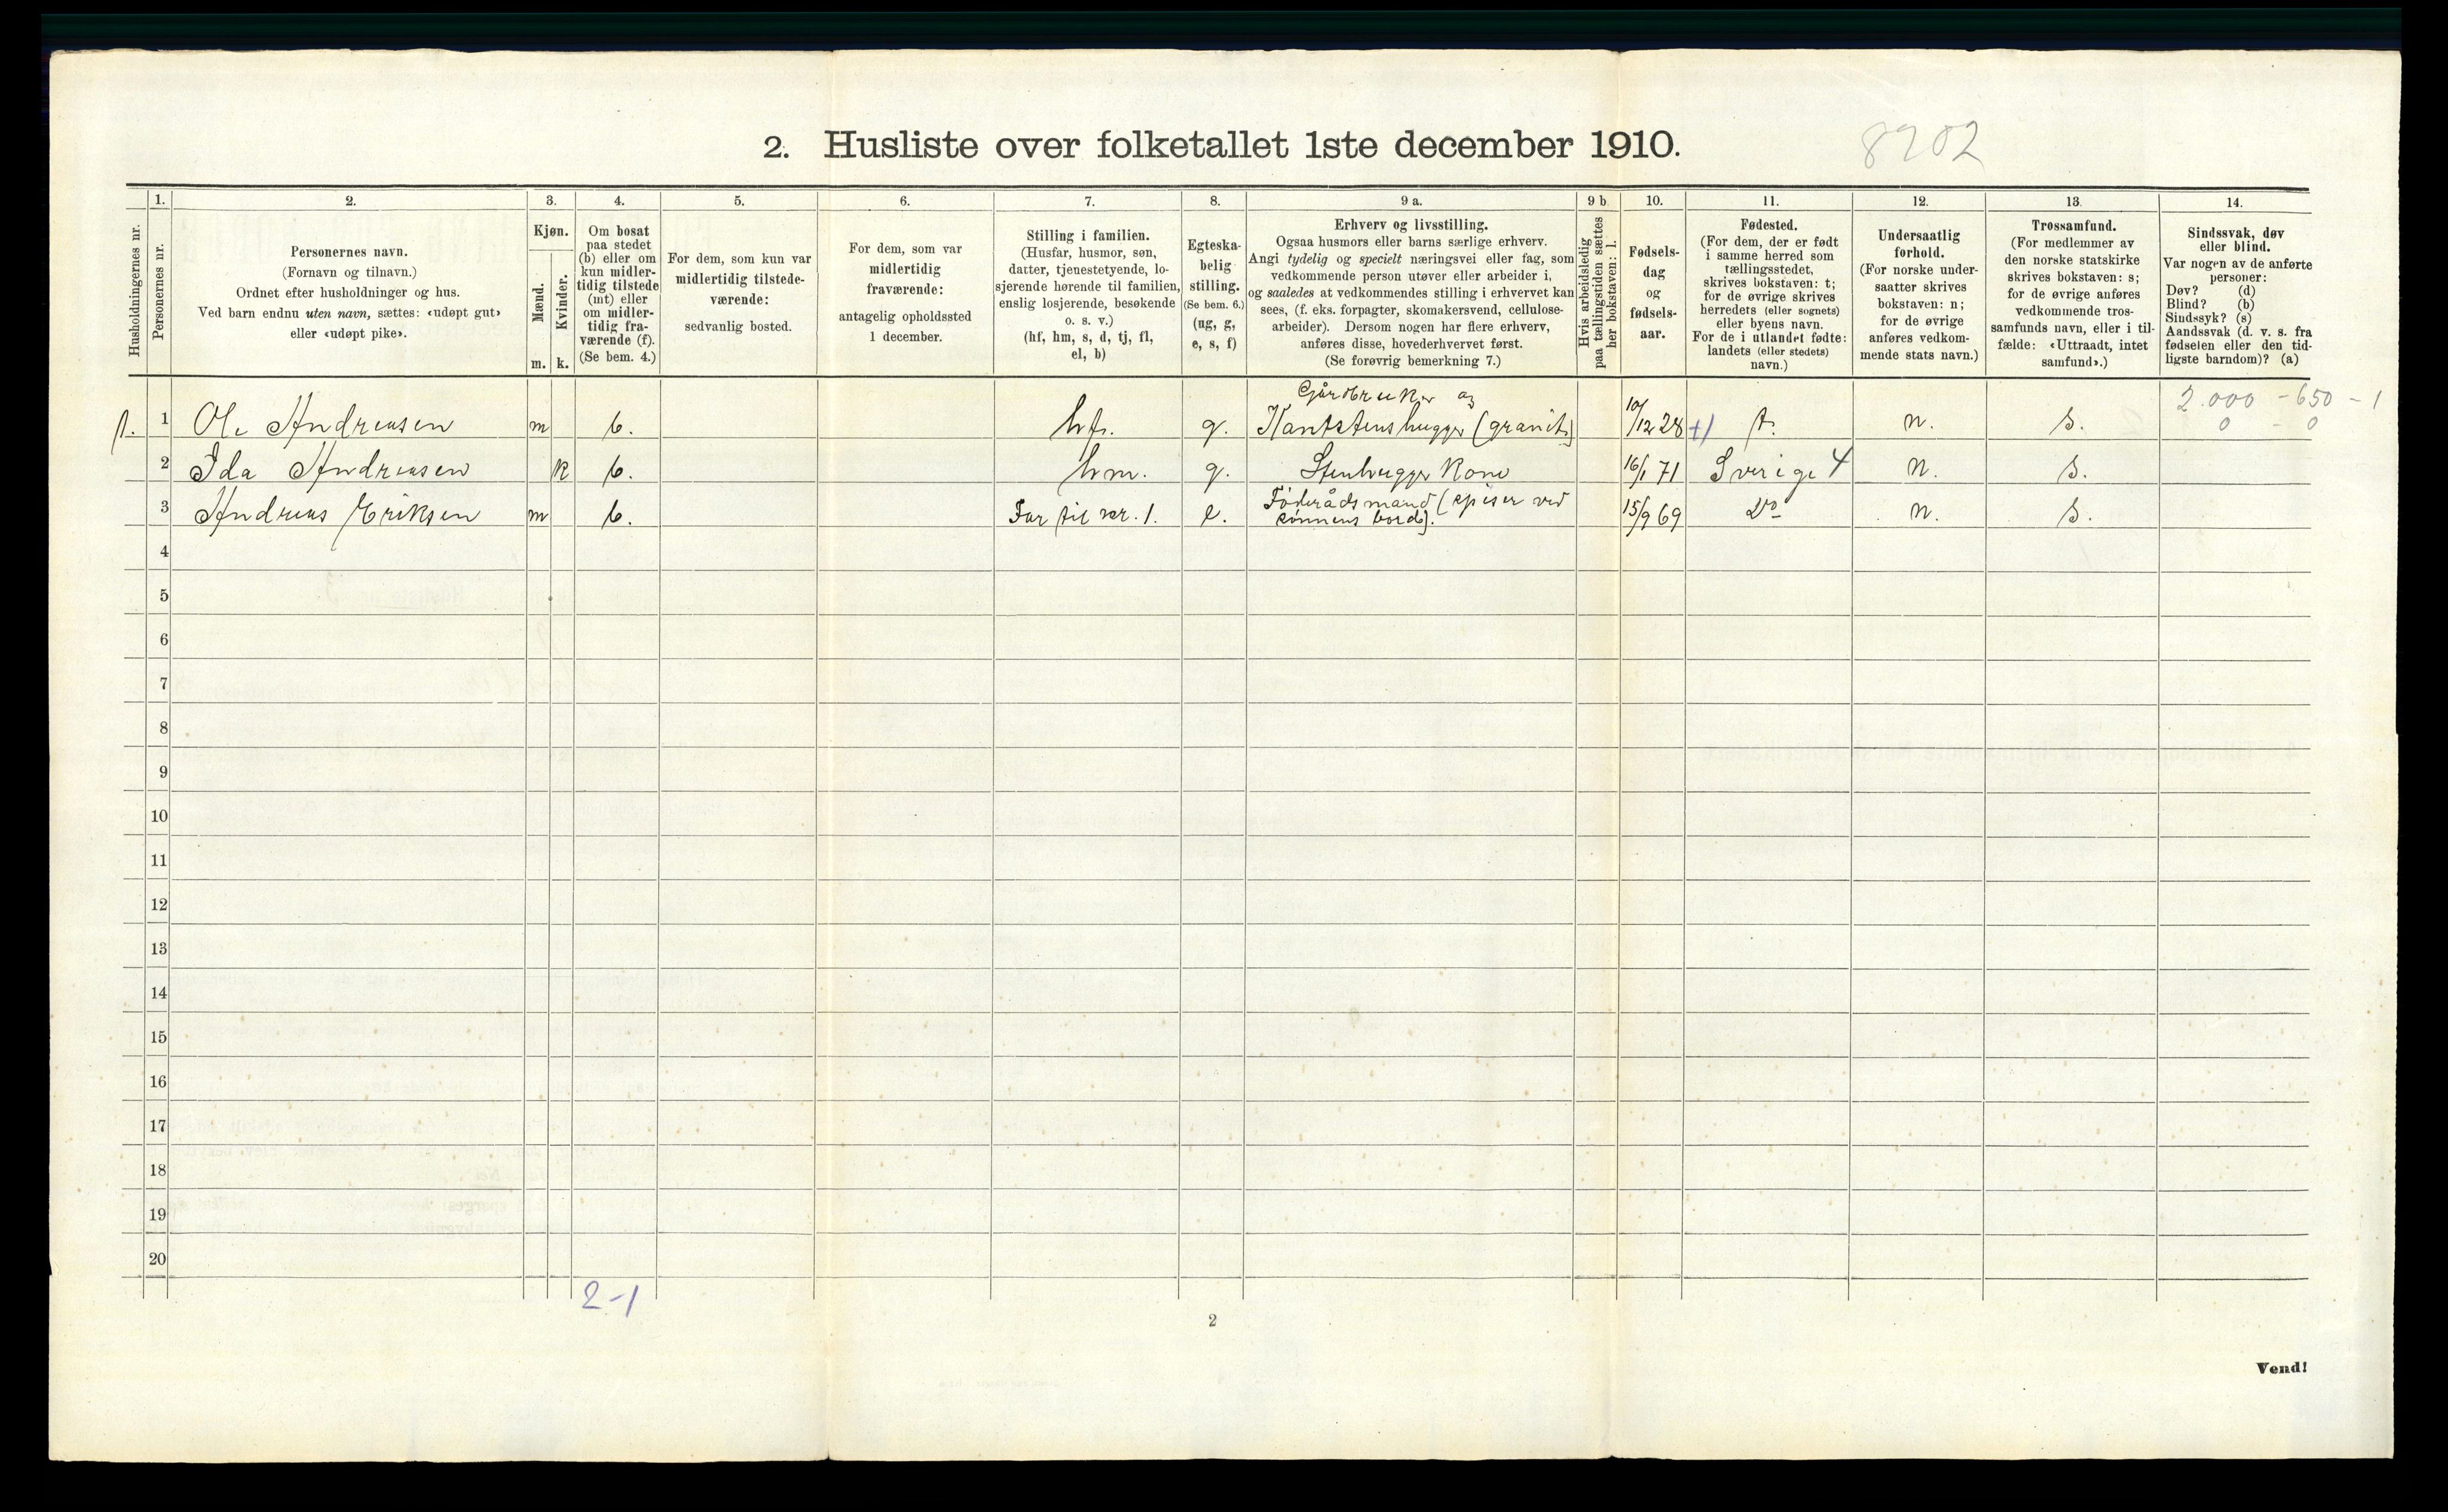 2. Husliste over folketallet 1ste december 1910.
8202
Husholdningernes nr.
1.
Personernes nr.
2.
Personernes navn.
(Fornavn og tilnavn.)
Ordnet efter husholdninger og hus.
Ved barn endnu uten navn, sættes: «udøpt gut»
eller «udøpt pike».
3.
Kjøn.
Mænd.
Kvinder.
m. k.
4.
Om bosat
paa stedet
(b) eller om
kun midler-
tidig tilstede
(mt) eller
om midler-
tidig fra-
værende (f).
(Se bem. 4.)
5.
For dem, som kun var
midlertidig tilstede-
værende:
sedvanlig bosted.
6.
For dem, som var
midlertidig
fraværende:
antagelig opholdssted
1 december.
7.
Stilling i familien.
(Husfar, husmor, søn,
datter, tjenestetyende, lo-
sjerende hørende til familien,
enslig losjerende, besøkende
o. s. v.)
(hf, hm, s, d, tj, fl,
el, b)
8.
Egteska-
belig
stilling.
(Se bem. 6.)
(ug, g,
e, s, f)
9 a.
Erhverv og livsstilling.
Ogsaa husmors eller barns særlige erhverv.
Angi tydelig og specielt næringsvei eller fag, som
vedkommende person utøver eller arbeider i,
og saaledes at vedkommendes stilling i erhvervet kan
sees, (f. eks. forpagter, skomakersvend, cellulose-
arbeider). Dersom nogen har flere erhverv,
anføres disse, hovederhvervet først.
(Se forøvrig bemerkning 7.)
9 b
Hvis arbeidsledig
paa tællingstiden sættes
her bokstaven: l.
10.
Fødsels-
dag
og
fødsels-
aar.
11.
Fødested.
(For dem, der er født
i samme herred som
tællingsstedet,
skrives bokstaven: t;
for de øvrige skrives
herredets (eller sognets)
eller byens navn.
For de i utlandet fødte:
landets (eller stedets)
navn.)
12.
Undersaatlig
forhold.
(For norske under-
saatter skrives
bokstaven: n;
for de øvrige
anføres vedkom-
mende stats navn.)
13.
Trossamfund.
(For medlemmer av
den norske statskirke
skrives bokstaven: s;
for de øvrige anføres
vedkommende tros-
samfunds navn, eller i til-
fælde: «Uttraadt, intet
samfund».)
14.
Sindssvak, døv
eller blind.
Var nogen av de anførte
personer:
Døv? (d)
Blind? (b)
Sindssyk? (s)
Aandssvak (d. v. s. fra
fødselen eller den tid-
ligste barndom)? (a)
2.000 - 650 - 1
0 - 0
Gårdbruker og
1. 1 Ole Andreasen m b. hf. g. Kantstenshugger (granit) 10/12 28 t. n. s.
2 Ida Andreasen k b. hm. g. Stenhugger Kone 16/1 71 Sverige 4 n. s.
3 Andreas Eriksen m b. Far til nr. 1. e. Föderådsmand (spiser ved
sönnens bord). 15/9 69 Do n. s.
4
5
6
7
8
9
10
11
12
13
14
15
16
17
18
19
20
2-1
2
Vend!